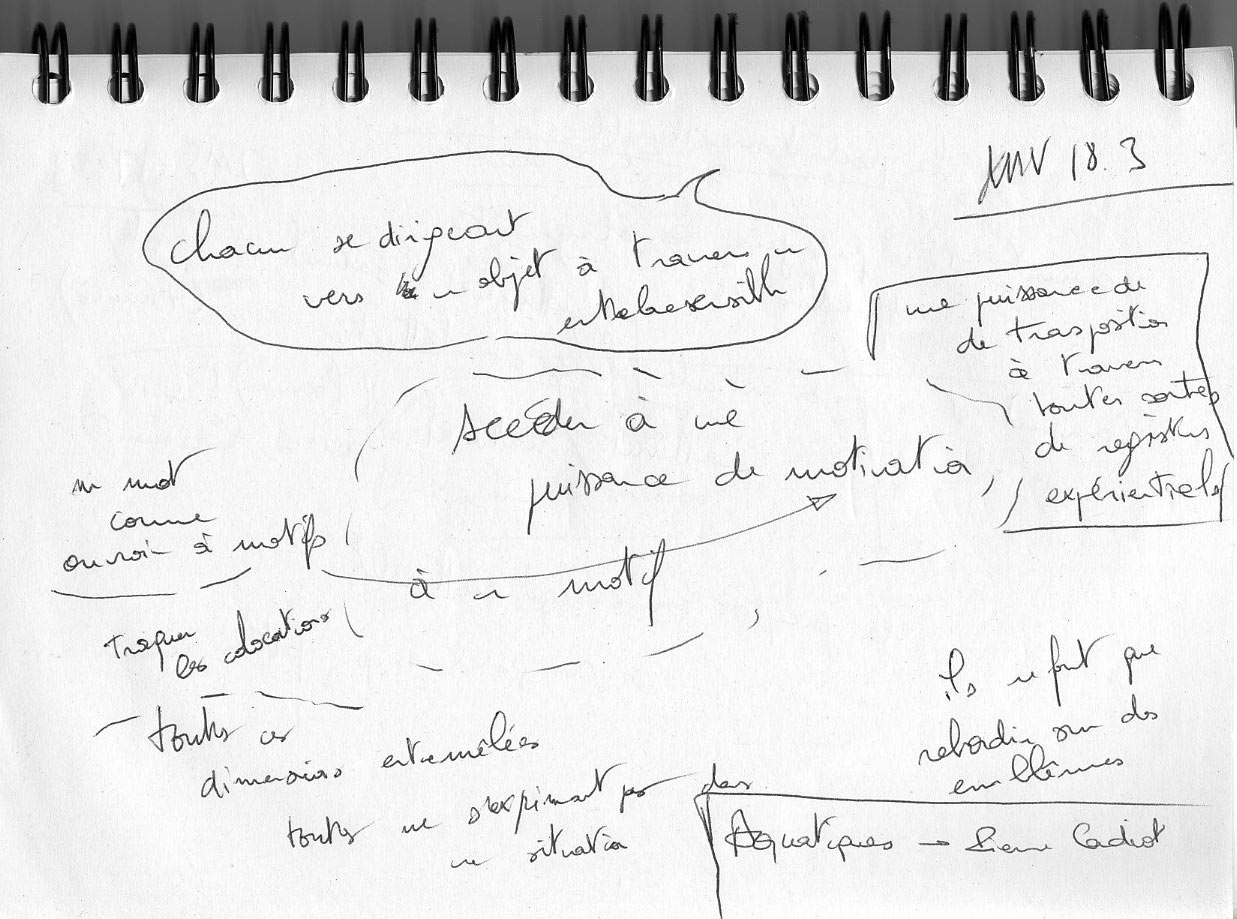 18.3
Chacun se dirigeant
vers un objet à travers un
une puissance de
de trasposition
à travers
toutes sortes
de registres
expérientiels
Accéder à une
puissance de motivation
à un motif
un mot
comme
ouvroir à motifs
Traquer
les colocations
toutes ces
dimensions entremêlées
toutes ne s'exprimant pas dans
une situation
ils ne font que
rebondir sur des
emblèmes
Aquatiques → Pierre Cadiot